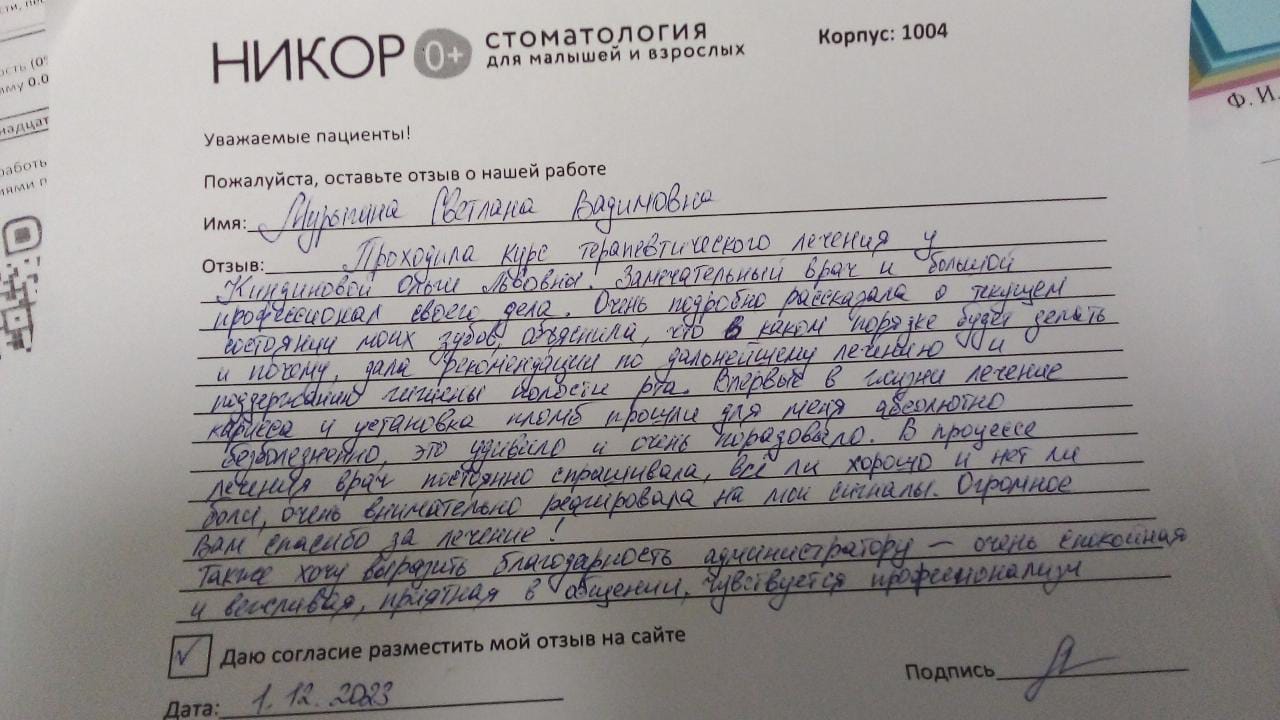 НИКОР 0+ СТОМАТОЛОГИЯ
ДЛЯ МАЛЫШЕЙ И ВЗРОСЛЫХ
Корпус: 1004
Уважаемые пациенты!
Пожалуйста, оставьте отзыв о нашей работе
Имя: Светлана Вадимовна
Отзыв: Проходила курс терапевтического лечения у
Киндиновой Ольги Львовны. Замечательный врач и большой
профессионал своего дела. Очень подробно рассказала о текущем
состоянии моих зубов, объяснила, что в каком порядке будет делать
и почему, дала рекомендации по дальнейшему лечению и
поддержанию гигиены полости рта. Впервые в жизни лечение
кариеса и установка пломб прошли для меня абсолютно
безболезненно, это удивило и очень порадовало. В процессе
лечения врач постоянно спрашивала, всё ли хорошо и нет ли
боли, очень внимательно реагировала на мои сигналы. Огромное
Вам спасибо за лечение!
Также хочу выразить благодарность администратору – очень спокойная
и вежливая, приятная в общении, чувствуется профессионализм
Даю согласие разместить мой отзыв на сайте
Подпись
Дата: 1.12.2023
Ф. И.